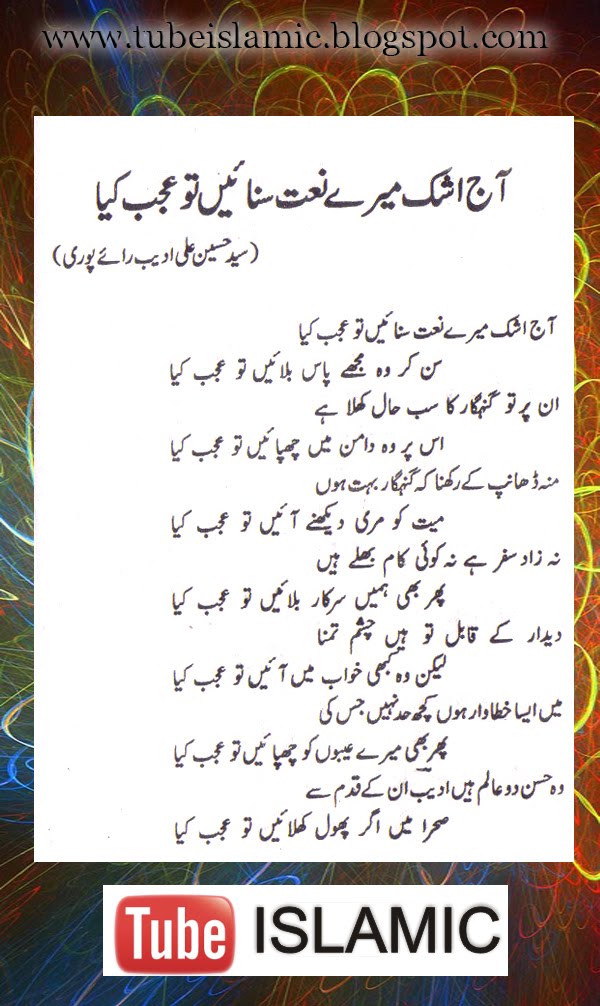 www.tubeislamic.blogspot.com
آج اشک میرے نعت سنائیں تو عجب کیا
(سید حسین علی ادیب رائے پوری)
آج اشک میرے نعت سنائیں تو عجب کیا
سن کر وہ مجھے پاس بلائیں تو عجب کیا
ان پر تو گنہگار کا سب حال کھلا ہے
اس پر وہ دامن میں چھپائیں تو عجب کیا
منہ ڈھانپ کے رکھنا کہ گنہگار بہت ہوں
میت کو مری دیکھنے آئیں تو عجب کیا
نہ زاد سفر ہے نہ کوئی کام بھلے ہیں
پھر بھی ہمیں سرکار بلائیں تو عجب کیا
دیدار کے قابل تو ہیں چشم تمنا
لیکن وہ کبھی خواب میں آئیں تو عجب کیا
میں ایسا خطاوار ہوں کچھ حد نہیں جس کی
پھر بھی میرے عیبوں کو چھپائیں تو عجب کیا
وہ حسن دو عالم ہیں ادیب ان کے قدم سے
صحرا میں اگر پھول کھلائیں تو عجب کیا
Tube ISLAMIC